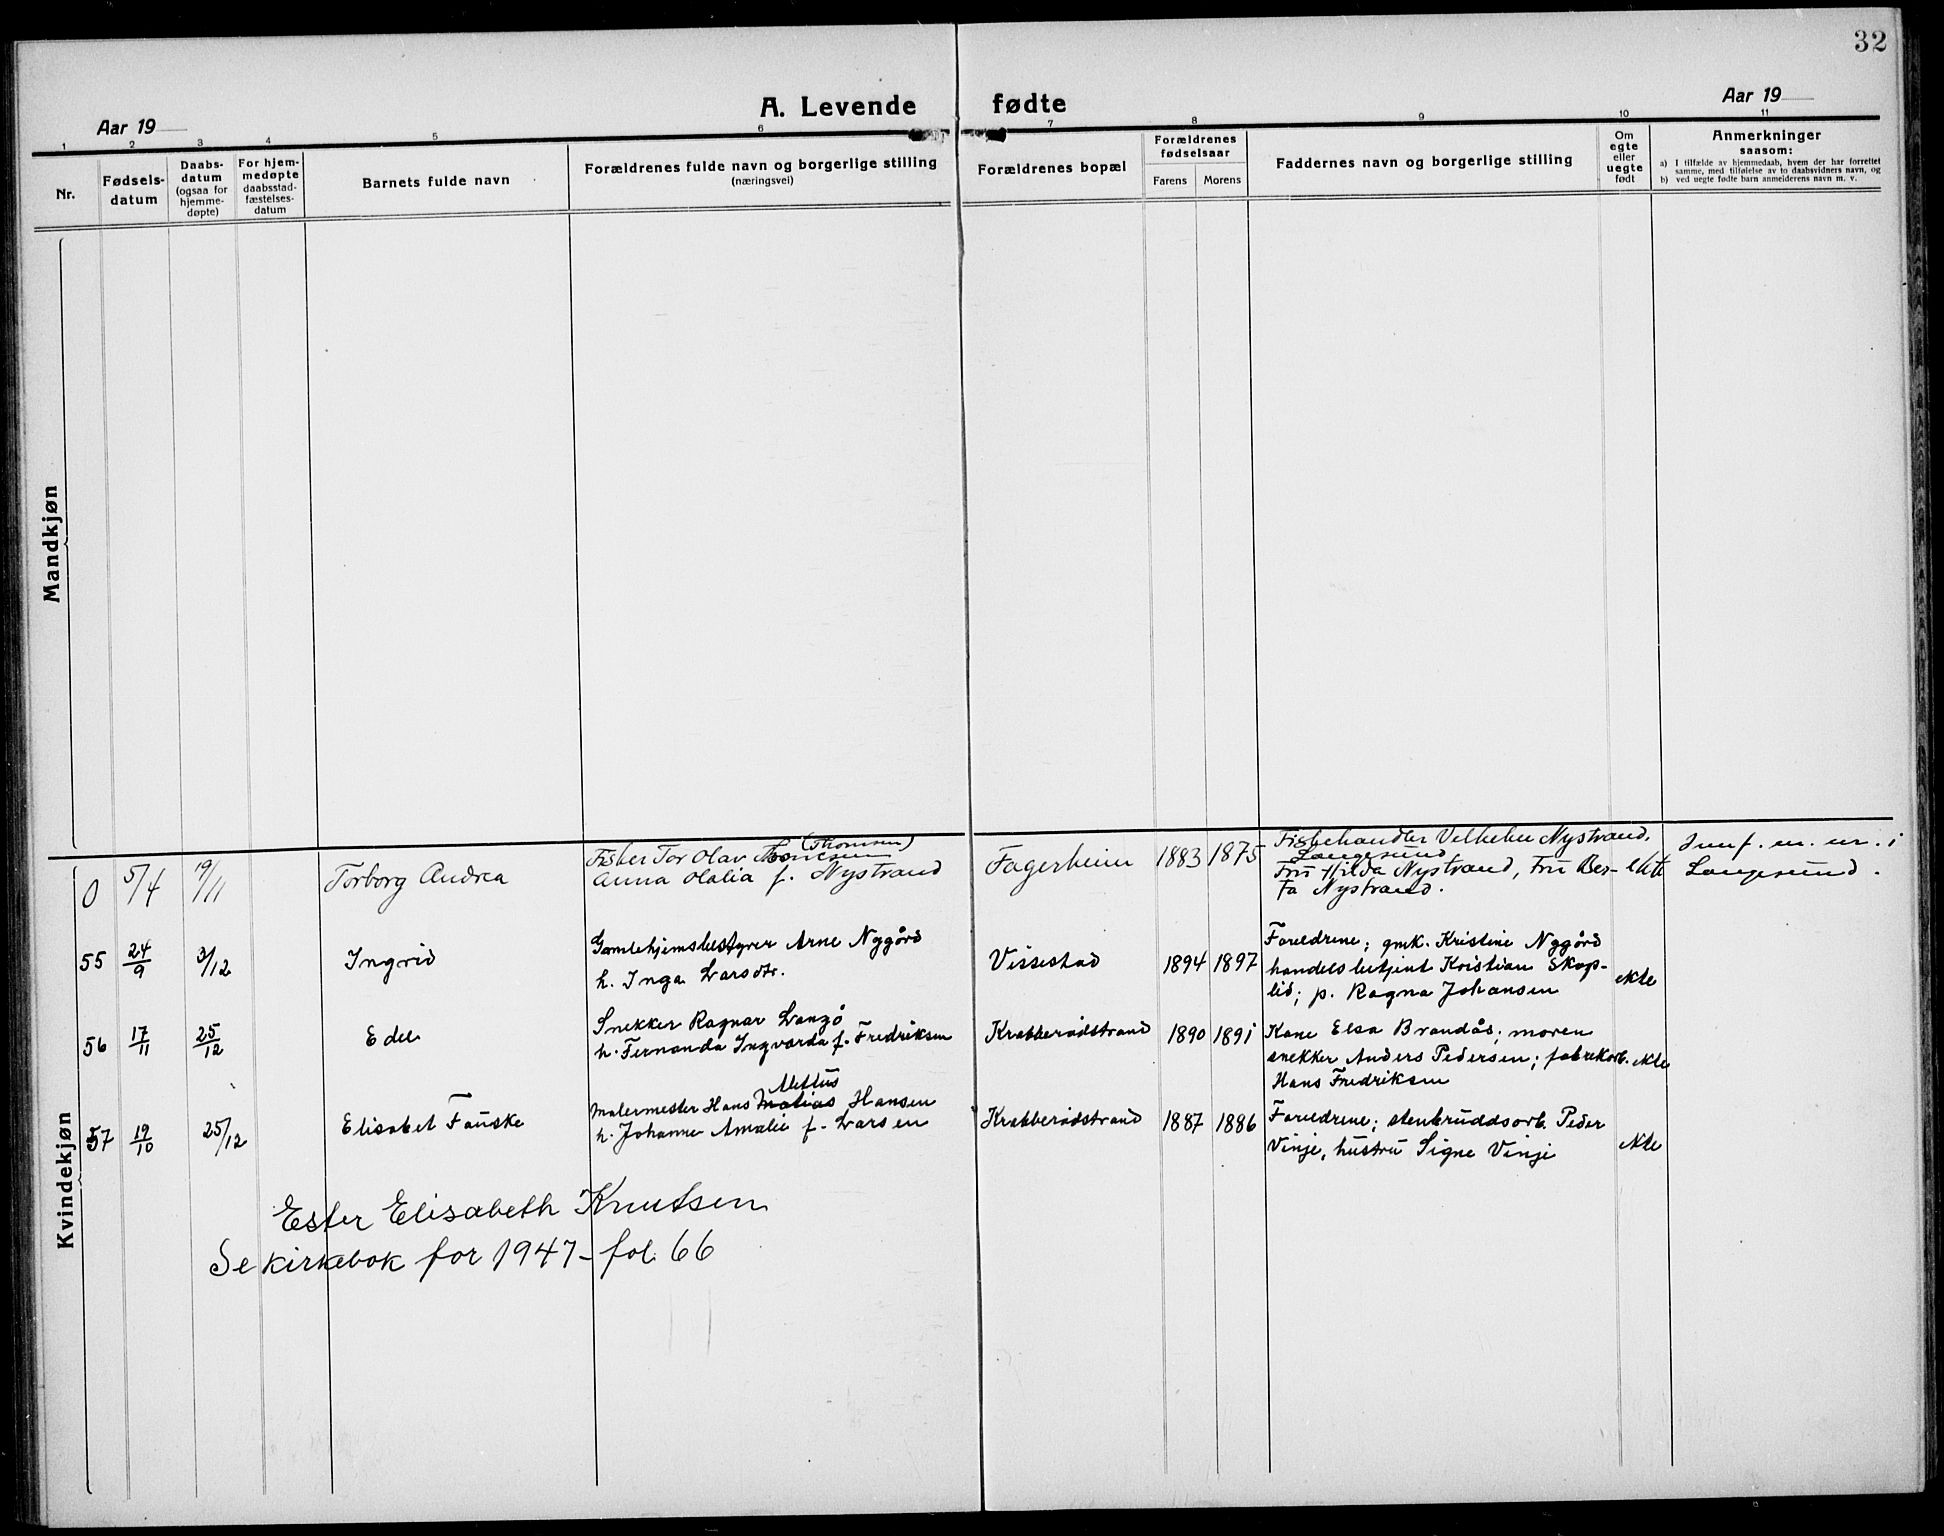 32
A. Levende fødte
Aar 19
Aar 19
1 2 3 4 5 6 7 8 9 10 11
Nr.
Fødsels-
datum
Daabs-
datum
(ogsaa for
hjemme-
døpte)
For hjem-
medøpte
daabsstad-
fæstelses-
datum
Barnets fulde navn
Forældrenes fulde navn og borgerlige stilling
(næringsvei)
Forældrenes bopæl
Forældrenes
fødselsaar
Farens Morens
Faddernes navn og borgerlige stilling
Om
egte
eller
uegte
født
Anmerkninger
saasom:
a) I tilfælde av hjemmedaab, hvem der har forrettet
samme, med tilføielse av to daabsvidners navn, og
b) ved uegte fødte barn anmelderens navn m. v.
Mandkjøn
Kvindekjøn
0 5/4 19/11 Torborg Andrea
Fisker Tor Olav (Thomsen)
Anna Olalia f. Nystrand
Fagerheim 1883 1875
Fiskehandler Vilhelm Nystrand,
Langesund
Fru Hilda Nystrand, Fru Ber-
ta Nystrand.
ekte
Innf. m. nr. i
Langesund.
55 24/9 3/12 Ingrid
Gamlehjemsbestyrer Arne Nygård
h. Inga Larsdtr.
Vissestad 1894 1897
Foreldrene; gmk. Kristine Nygård
handelsbetjent Kristian Skap-
lid; p. Ragna Johansen
ekte
56 17/11 25/12 Edel
Snekker Ragnar Langø
h. Fernanda Ingvarda f. Fredriksen
Krabberødstrand 1890 1891
Kone Elsa Brandås; moren
snekker Anders Pedersen; fabrikarb.
Hans Fredriksen
ekte
57 19/10 25/12 Elisabet Fauske
Alettus
Malermester Hans Matias Hansen
h. Johanne Amalie f. Larsen
Krabberødstrand 1887 1886
Foreldrene; stenbruddsarb. Peder
Vinje, hustru Signe Vinje
ekte
Ester Elisabeth Knutsen
Se kirkebok for 1947 - fol. 66